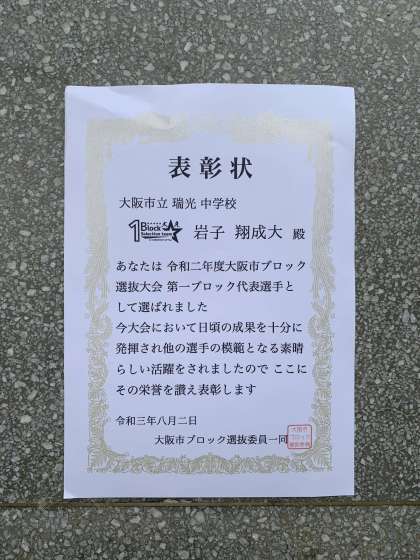 表彰状
大阪市立 瑞光 中学校
1 Block
Selection team
岩子 翔成大 殿
あなたは 令和二年度大阪市ブロック
選抜大会 第一ブロック代表選手と
して選ばれました
今大会において日頃の成果を十分に
発揮され他の選手の模範となる素晴
らしい活躍をされましたので ここに
その栄誉を讃え表彰します
令和三年八月二日
大阪市ブロック選抜委員一同
大阪市
ブロック